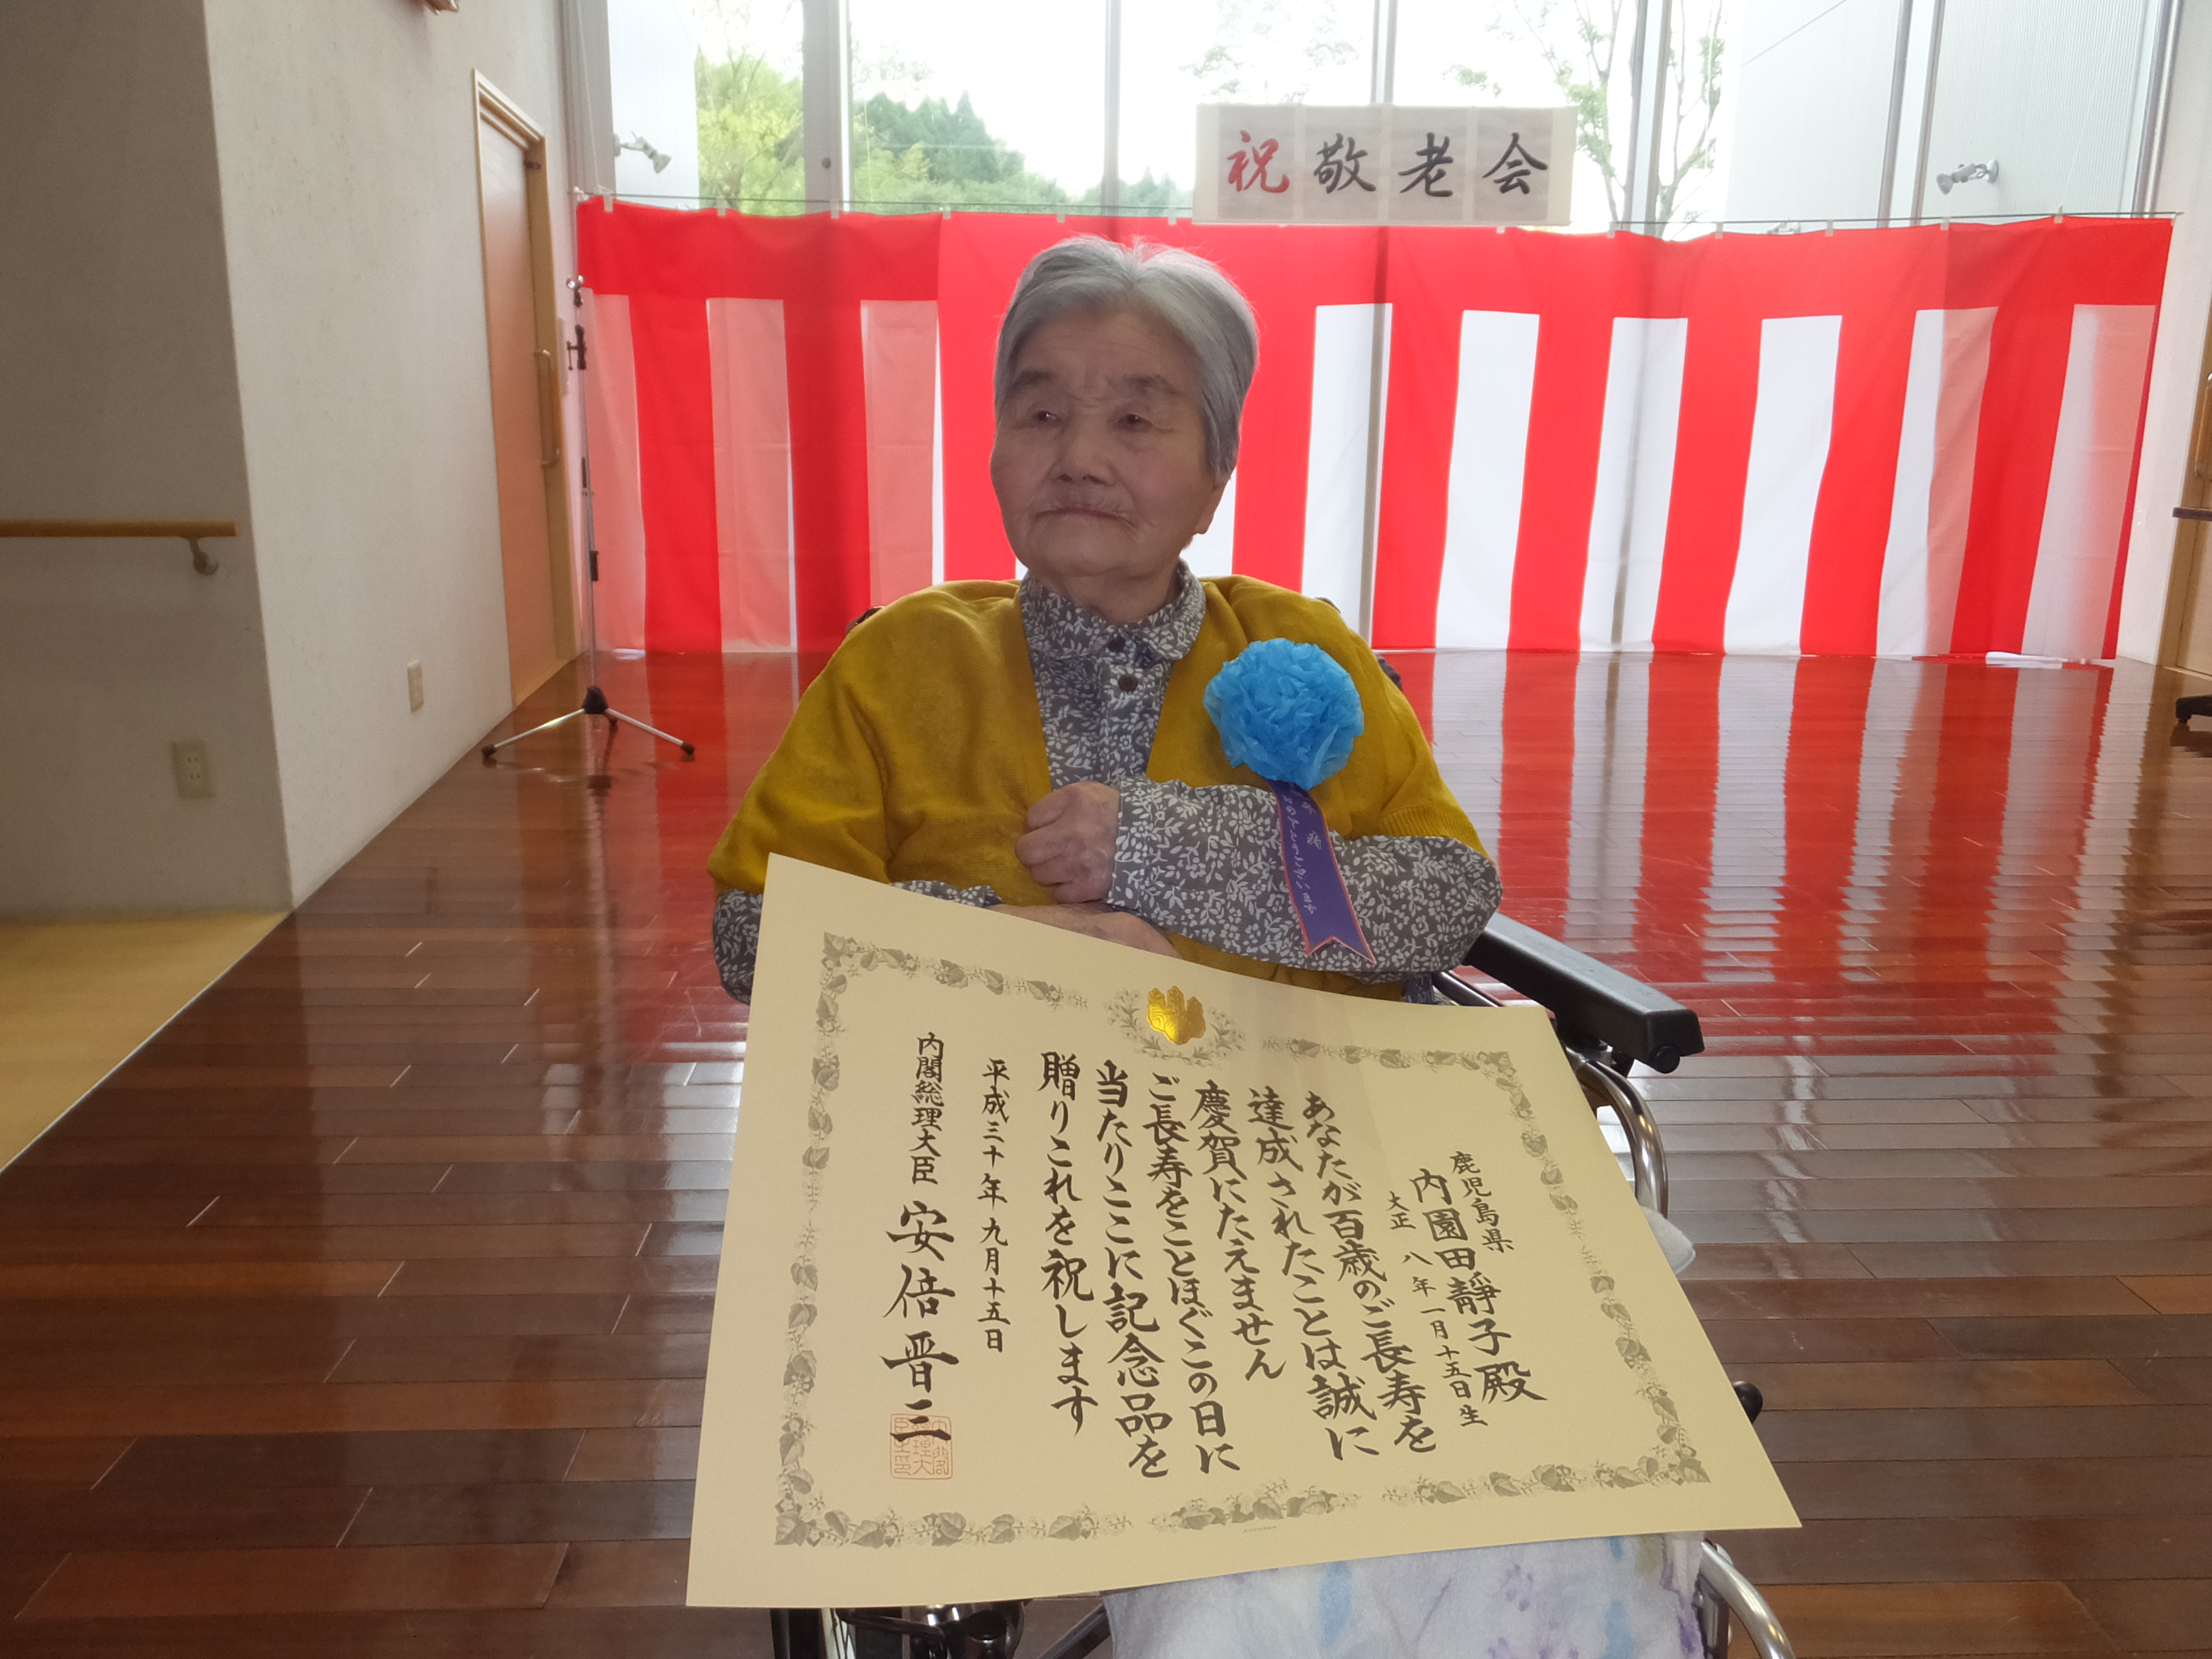 祝敬老会
鹿児島県
内園田靜子殿
大正八年一月十五日生
あなたが百歳のご長寿を
達成されたことは誠に
慶賀にたえません
ご長寿をことほぐこの日に
当たりここに記念品を
贈りこれを祝します
平成三十年九月十五日
内閣総理大臣安倍晋三